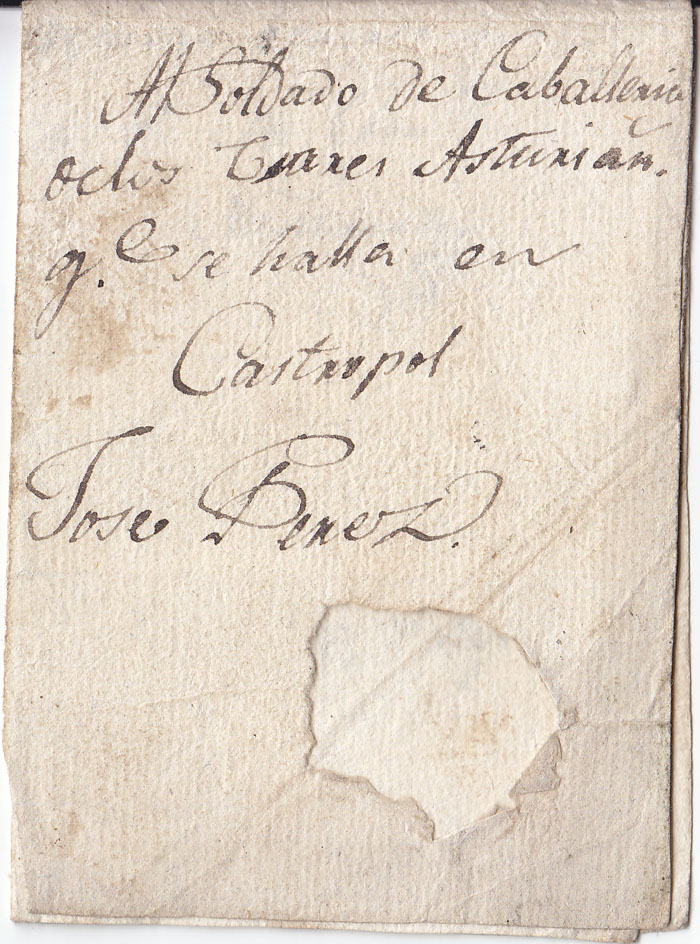 Al Soldado de Caballeria
delos Usares Asturian.
q.e se halla en
Castropol
Jose Perez.